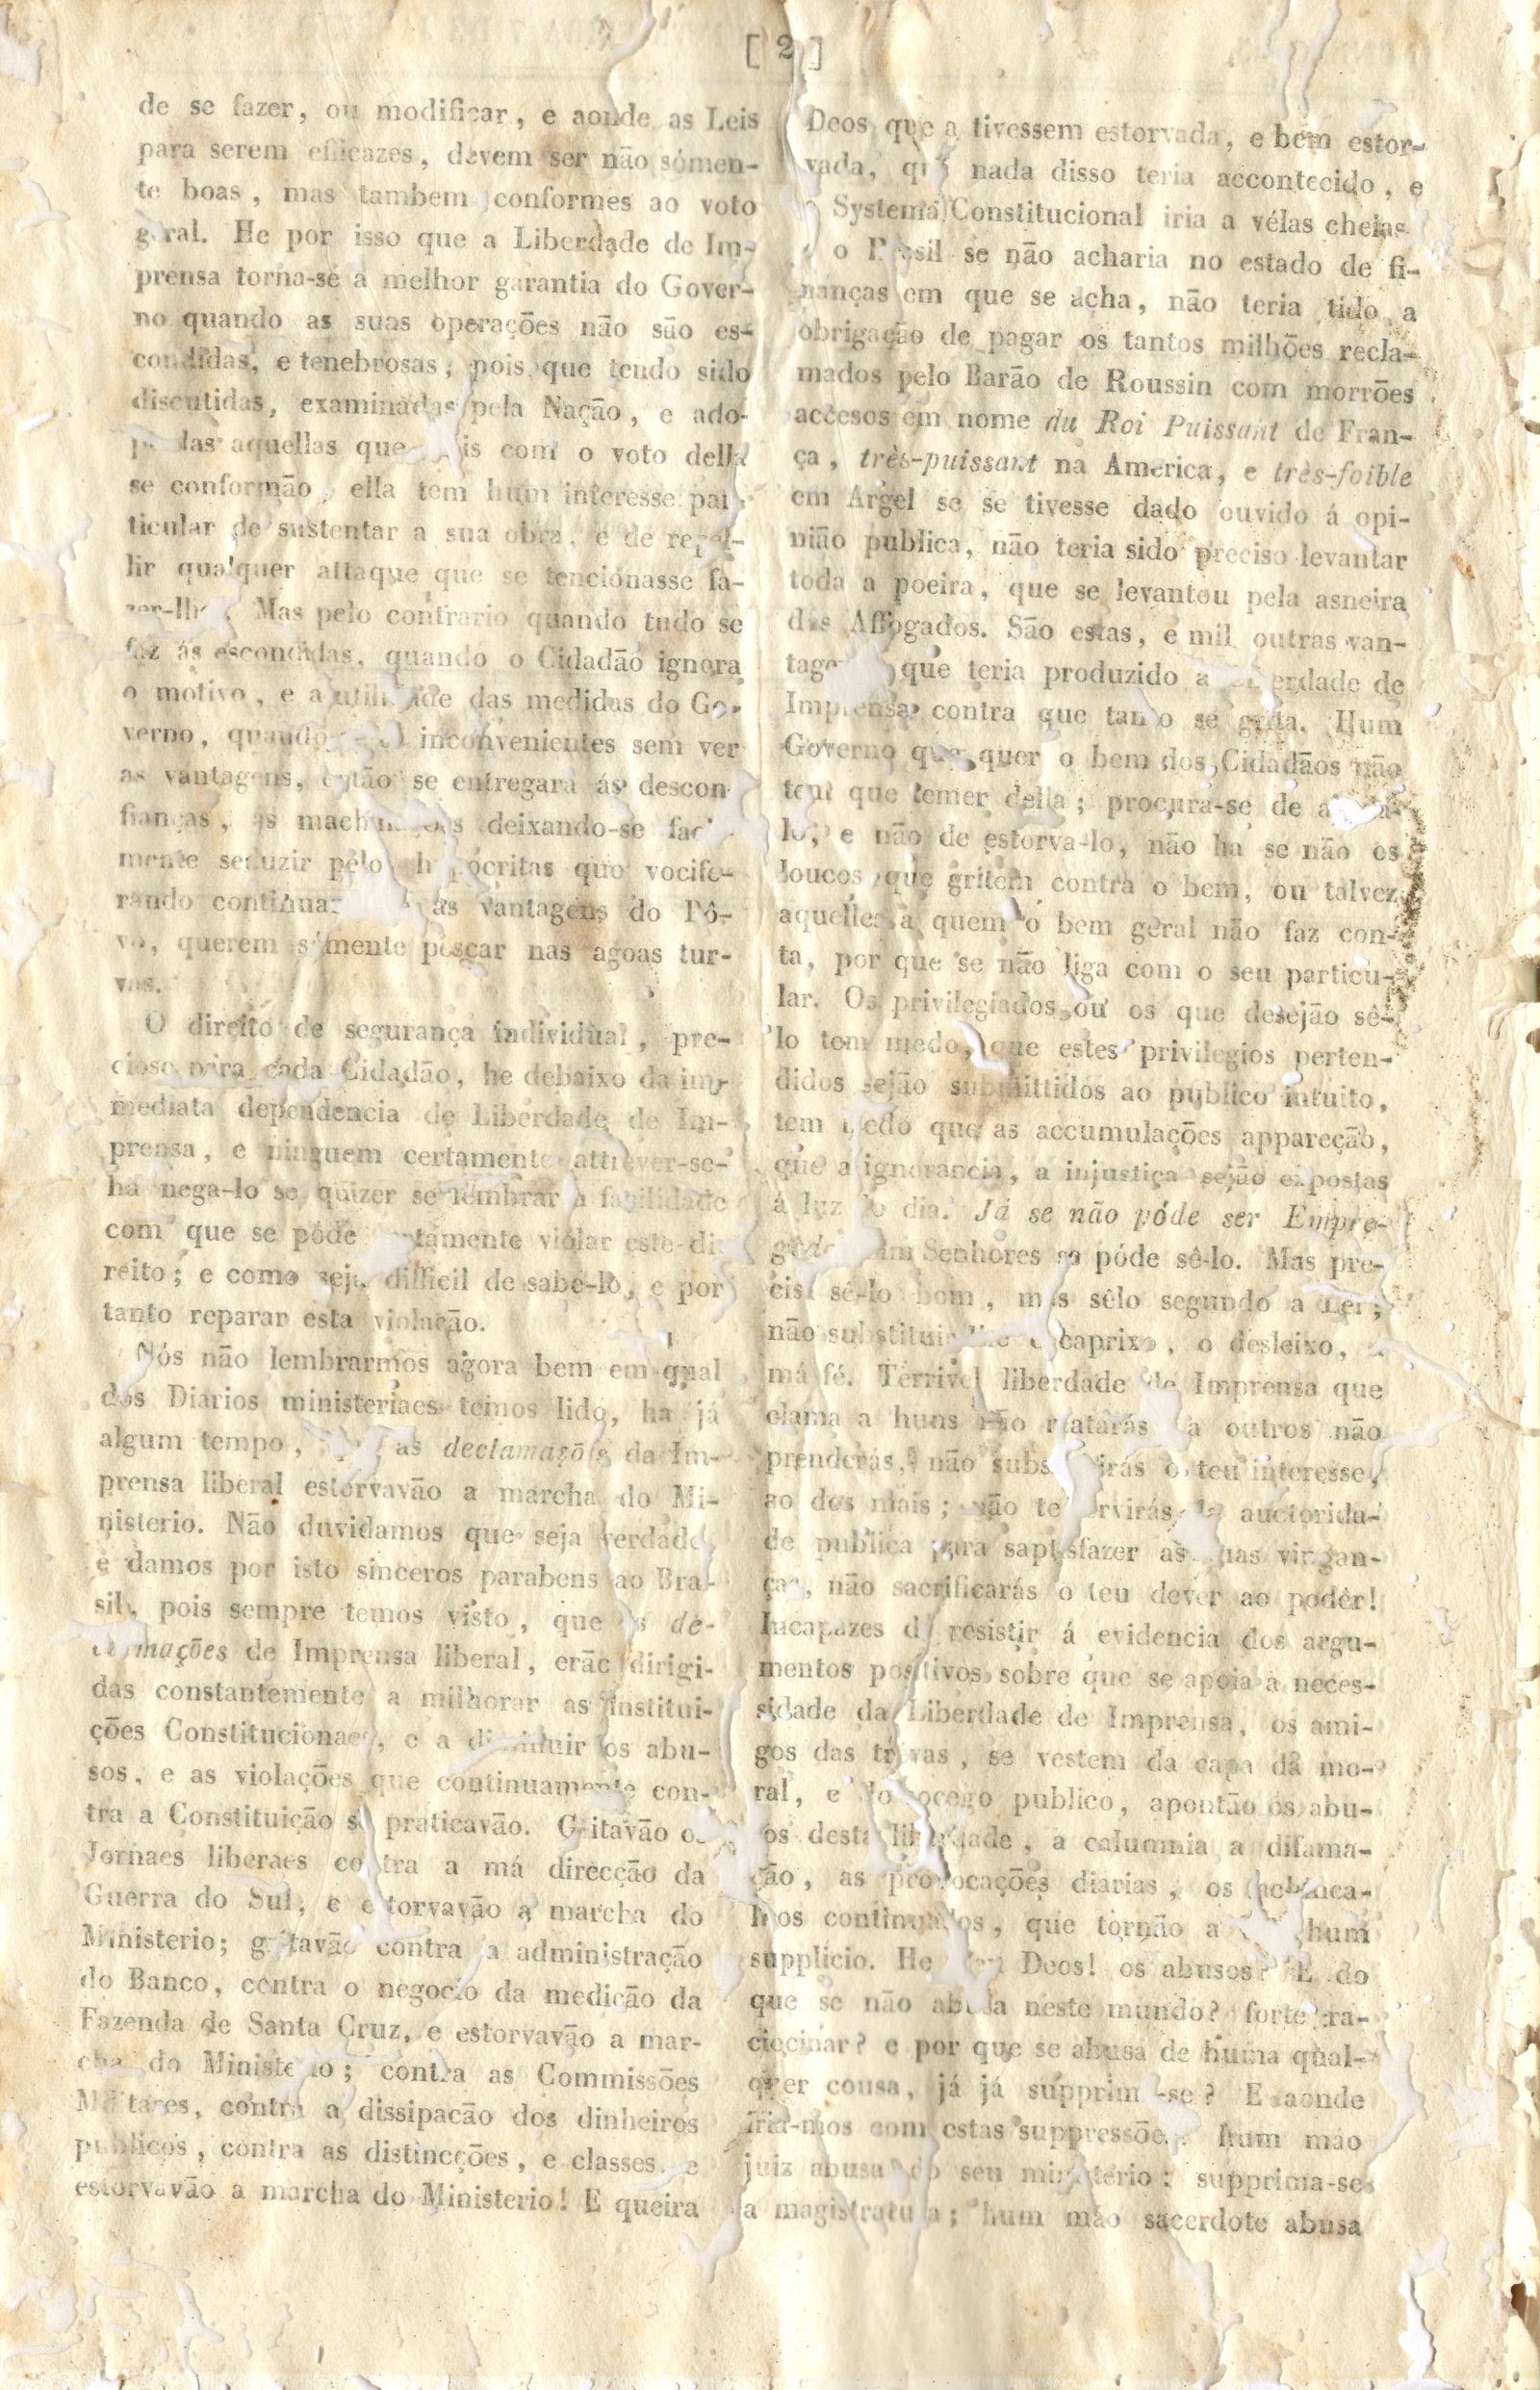 [ 2 ]
de se fazer, ou modificar, e aonde as Leis
para serem efficazes, devem ser não sómen-
te boas, mas tambem conformes ao voto
geral. He por isso que a Liberdade de Im-
prensa torna-se a melhor garantia do Gover-
no quando as suas operações não são es-
condidas, e tenebrosas; pois que tendo sido
discutidas, examinadas pela Nação, e ado-
aquellas que com o voto della
se conformão, ella tem hum interesse par-
ticular de sustentar a sua obra, e de repel-
lir qualquer attaque que se tencionasse fa-
zer-lhe. Mas pelo contrario quando tudo se
faz ás escondidas, quando o Cidadão ignora
o motivo, e a utilidade das medidas do Go-
verno, quando inconvenientes sem ver
as vantagens, então se entregara ás descon
fianças, ás deixando-se
mente seduzir pelo hypocritas que vocife-
rando as vantagens do Pô-
vo, querem sómente pescar nas agoas tur-
vas.
O direito de segurança individual, pre-
cioso para cada Cidadão, he debaixo da im-
mediata dependencia de Liberdade de Im-
prensa, e ninguem certamente attrever-se-
ha nega-lo se quizer se lembrar a facilidade
com que se póde violar este di
reito; e como seja difficil de sabe-lo, e por
tanto reparar esta violação.
Nós não lembrarmos agora bem em qual
dos Diarios ministeriaes temos lido, ha já
algum tempo, as declamações da Im-
prensa liberal estorvavão a marcha do Mi-
nisterio. Não duvidamos que seja verdade
e damos por isto sinceros parabens ao Bra-
sil, pois sempre temos visto, que as de-
clamações de Imprensa liberal, erão dirigi-
das constantemente a milhorar as institui-
ções Constitucionaes, e a diminuir os abu-
sos, e as violações que continuamente con-
tra a Constituição se praticavão. Gritavão os
Jornaes liberaes contra a má direcção da
Guerra do Sul, e estorvavão a marcha do
Ministerio; gritavão contra a administração
do Banco, contra o negocio da medição da
Fazenda de Santa Cruz, e estorvavão a mar-
cha do Ministerio; contra as Commissões
Militares, contra a dissipacão dos dinheiros
publicos, contra as distincções, e classes, e
estorvavão a marcha do Ministerio! E queira
Deos que a tivessem estorvada, e bem estor-
vada, que nada disso teria accontecido, e
o Systema Constitucional iria a vélas cheias
o Brasil se não acharia no estado de fi-
nanças em que se acha, não teria tido a
obrigação de pagar os tantos milhões recla-
mados pelo Barão de Roussin com morrões
accesos em nome du Roi Puissant de Fran-
ça, très-puissant na America, e très-foible
em Argel se se tivesse dado ouvido á opi-
nião publica, não teria sido preciso levantar
toda a poeira, que se levantou pela asneira
dos Affogados. São estas, e mil outras van-
tagens que teria produzido a Liberdade de
Imprensa contra que tanto se grita. Hum
Governo que quer o bem dos Cidadãos não
tem que temer della; procura-se de
lo, e não de estorva-lo, não ha se não os
loucos que gritem contra o bem, ou talvez
aquelles a quem o bem geral não faz con-
ta, por que se não liga com o seu particu-
lar. Os privilegiados ou os que desejão sê-
lo tem medo, que estes privilegios perten-
didos sejão submittidos ao publico intuito,
tem medo que as accumulações appareção,
que a ignorancia, a injustiça sejão expostas
á luz do dia. Já se não póde ser Empre-
gado Senhores se póde sê-lo. Mas pre-
cisa sê-lo bom, mas sêlo segundo a Lei;
não substituir-lhe o caprixo, o desleixo, a
má fé. Terrivel liberdade de Imprensa que
clama a huns não matarás a outros não
prenderás, não substituirás o teu interesse,
ao dos mais; não te servirás da auctorida-
de publica para saptisfazer as tuas vingan-
ças, não sacrificarás o teu dever ao podêr!
Incapazes de resistir á evidencia dos argu-
mentos positivos sobre que se apoia a neces-
sidade da Liberdade de Imprensa, os ami-
gos das trevas, se vestem da capa da mo-
ral, e do socego publico, apontão os abu-
sos desta liberdade, a calumnia a difama-
ção, as provocações diarias, os achinca-
lhos continuados, que tornão a hum
supplicio. He Deos! os abusos? E do
que se não abusa neste mundo? forte ra-
ciocinar? e por que se abusa de huma qual-
quer cousa, já já supprime-se? E aonde
iria-mos com estas suppressões. hum máo
juiz abusa do seu ministerio: supprima-se
a magistratura; hum máo sacerdote abusa